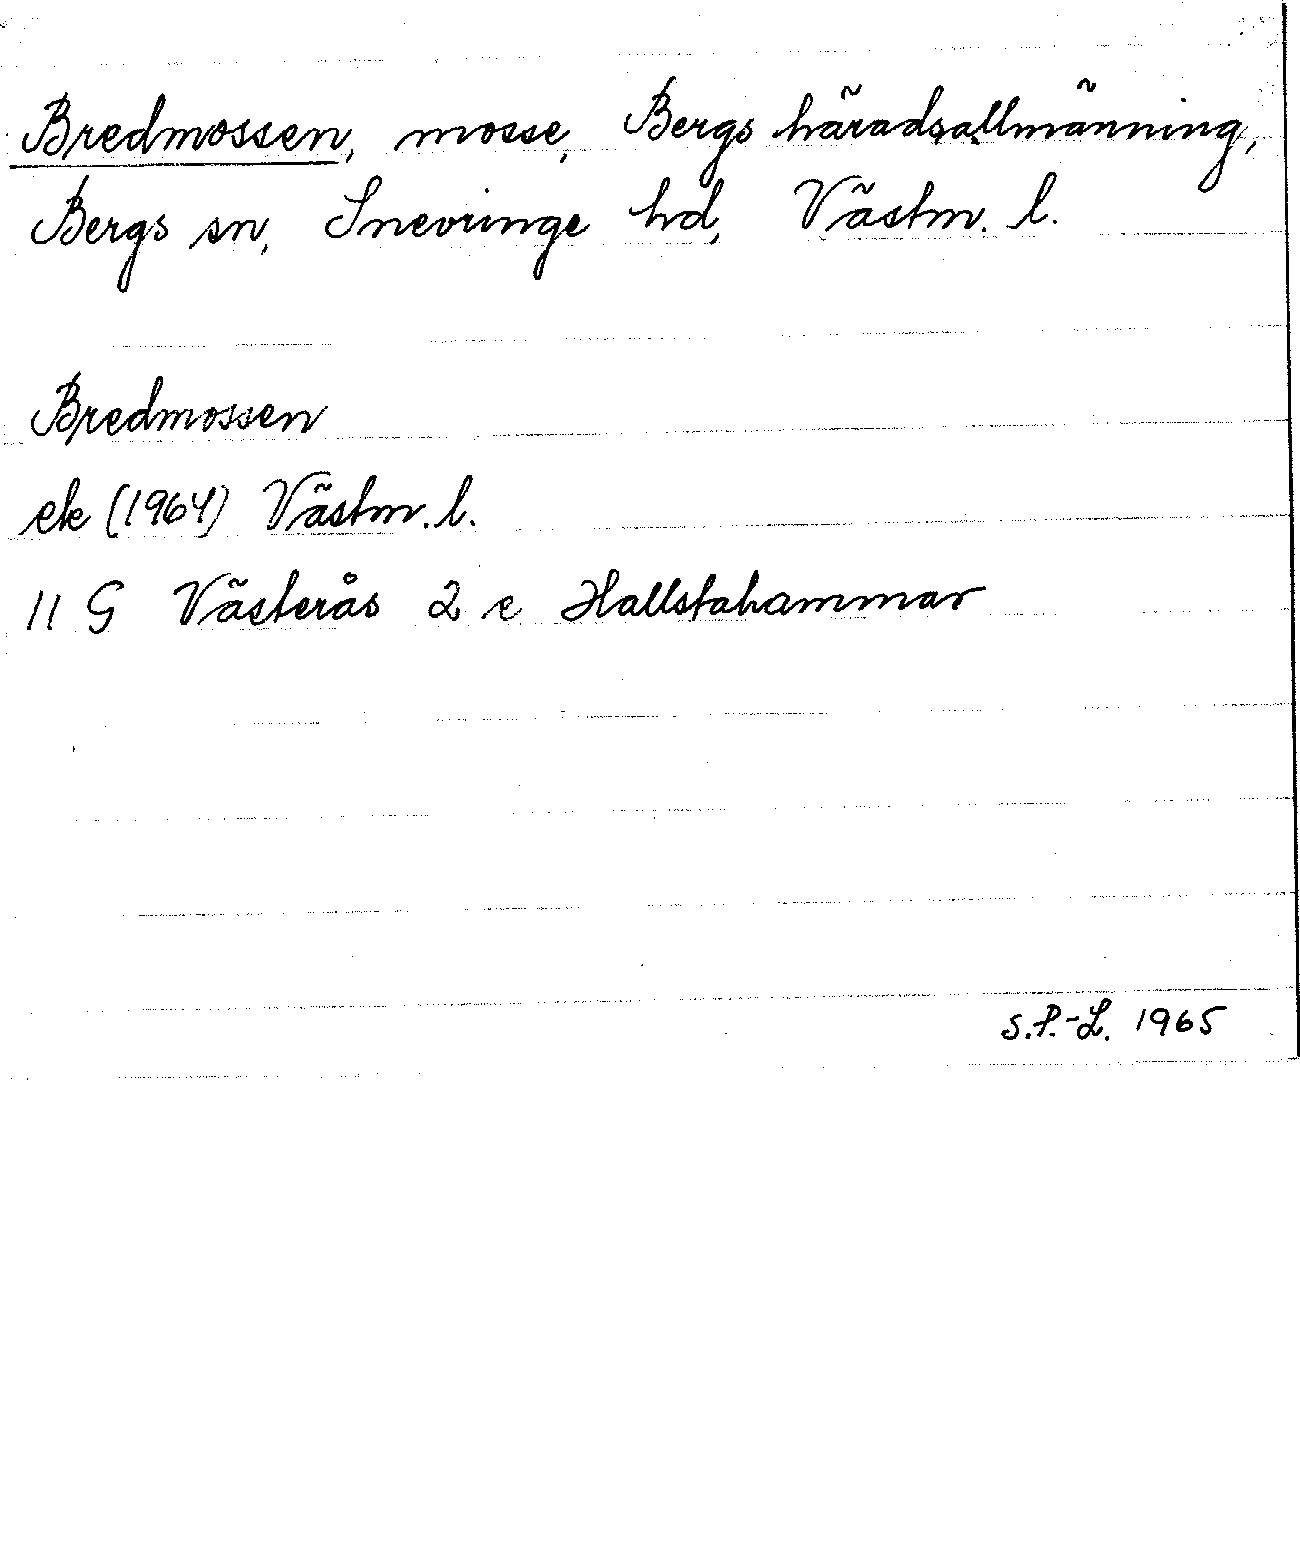 Bredmossen, mosse, Bergs häradsallmänning,
Bergs sn, Snevringe hd, Västm. l.
Bredmossen
ek (1964) Västm. l.
11 G Västerås 2 e Hallstahammar
S.P.-L. 1965